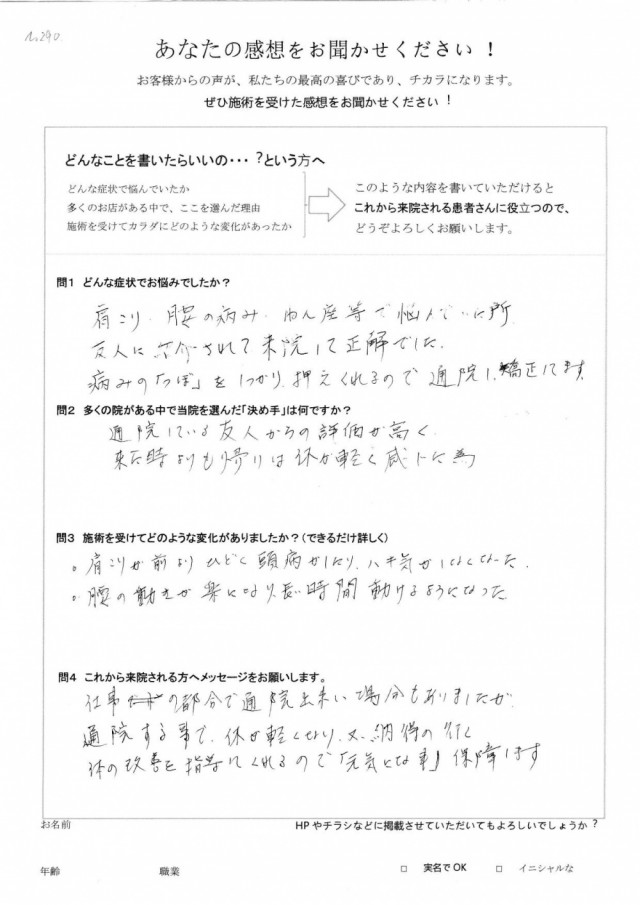 No290
あなたの感想をお聞かせください！
お客様からの声が、私たちの最高の喜びであり、チカラになります。
ぜひ施術を受けた感想をお聞かせください！
どんなことを書いたらいいの・・・？という方へ
どんな症状で悩んでいたか
多くのお店がある中で、ここを選んだ理由
施術を受けてカラダにどのような変化があったか
このような内容を書いていただけると
これから来院される患者さんに役立つので、
どうぞよろしくお願いします。
問1 どんな症状でお悩みでしたか？
肩こり・腰の痛み・ねん座等で悩んでいた所
友人に紹介されて来院して正解でした。
痛みの「つぼ」をしっかり押えくれるので通院し、矯正してます。
問2 多くの院がある中で当院を選んだ「決め手」は何ですか？
通院している友人からの評価が高く
来た時よりも帰りは体が軽く感じた為
問3 施術を受けてどのような変化がありましたか？（できるだけ詳しく）
。肩こりが前よりひどく頭痛がしたり、ハキ気がしなくなった。
。腰の動きが楽になり、長い時間動けるようになった
問4 これから来院される方へメッセージをお願いします。
仕事の都合で通院出来ない場合もありましたが
通院する事で、体が軽くなり、又、納得の行く
体の改善を指導してくれるので「元気となる事」保障します
お名前
HPやチラシなどに掲載させていただいてもよろしいでしょうか？
年齢 職業 □ 実名でOK □ イニシャルな